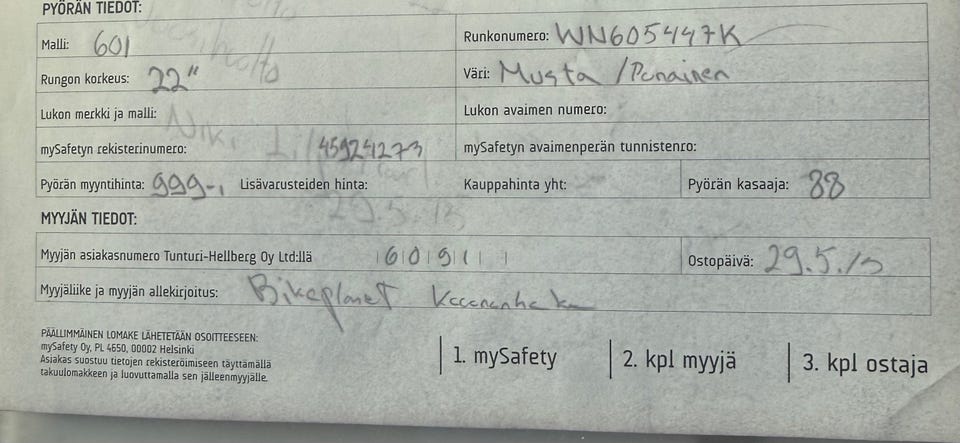 PYÖRÄN TIEDOT:
Malli: 601
Runkonumero: WN605447K
Rungon korkeus: 22"
Väri: Musta / Punainen
Lukon merkki ja malli:
Lukon avaimen numero:
mySafetyn rekisterinumero: 45924273
mySafetyn avaimenperän tunnistenro:
Pyörän myyntihinta: 999-, Lisävarusteiden hinta: Kauppahinta yht: Pyörän kasaaja: 88
MYYJÄN TIEDOT:
Myyjän asiakasnumero Tunturi-Hellberg Oy Ltd:llä 6091
Ostopäivä: 29.5.15
Myyjäliike ja myyjän allekirjoitus: Bikeplanet
PÄÄLLIMMÄINEN LOMAKE LÄHETETÄÄN OSOITTEESEEN:
mySafety Oy, PL 4650, 00002 Helsinki
Asiakas suostuu tietojen rekisteröimiseen täyttämällä
takuulomakkeen ja luovuttamalla sen jälleenmyyjälle.
1. mySafety
2. kpl myyjä
3. kpl ostaja